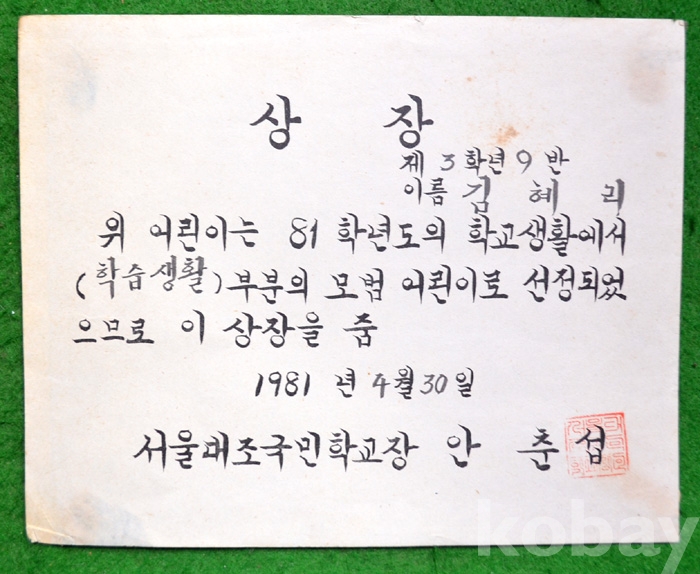 상 장
제 3 학년 9 반
이름 김 혜 리
위 어린이는 81 학년도의 학교생활에서
(학습생활) 부분의 모범 어린이로 선정되었
으므로 이 상장을 줌
1981 년 4월 30일
서울대조국민학교장 안 춘 섭
kobay